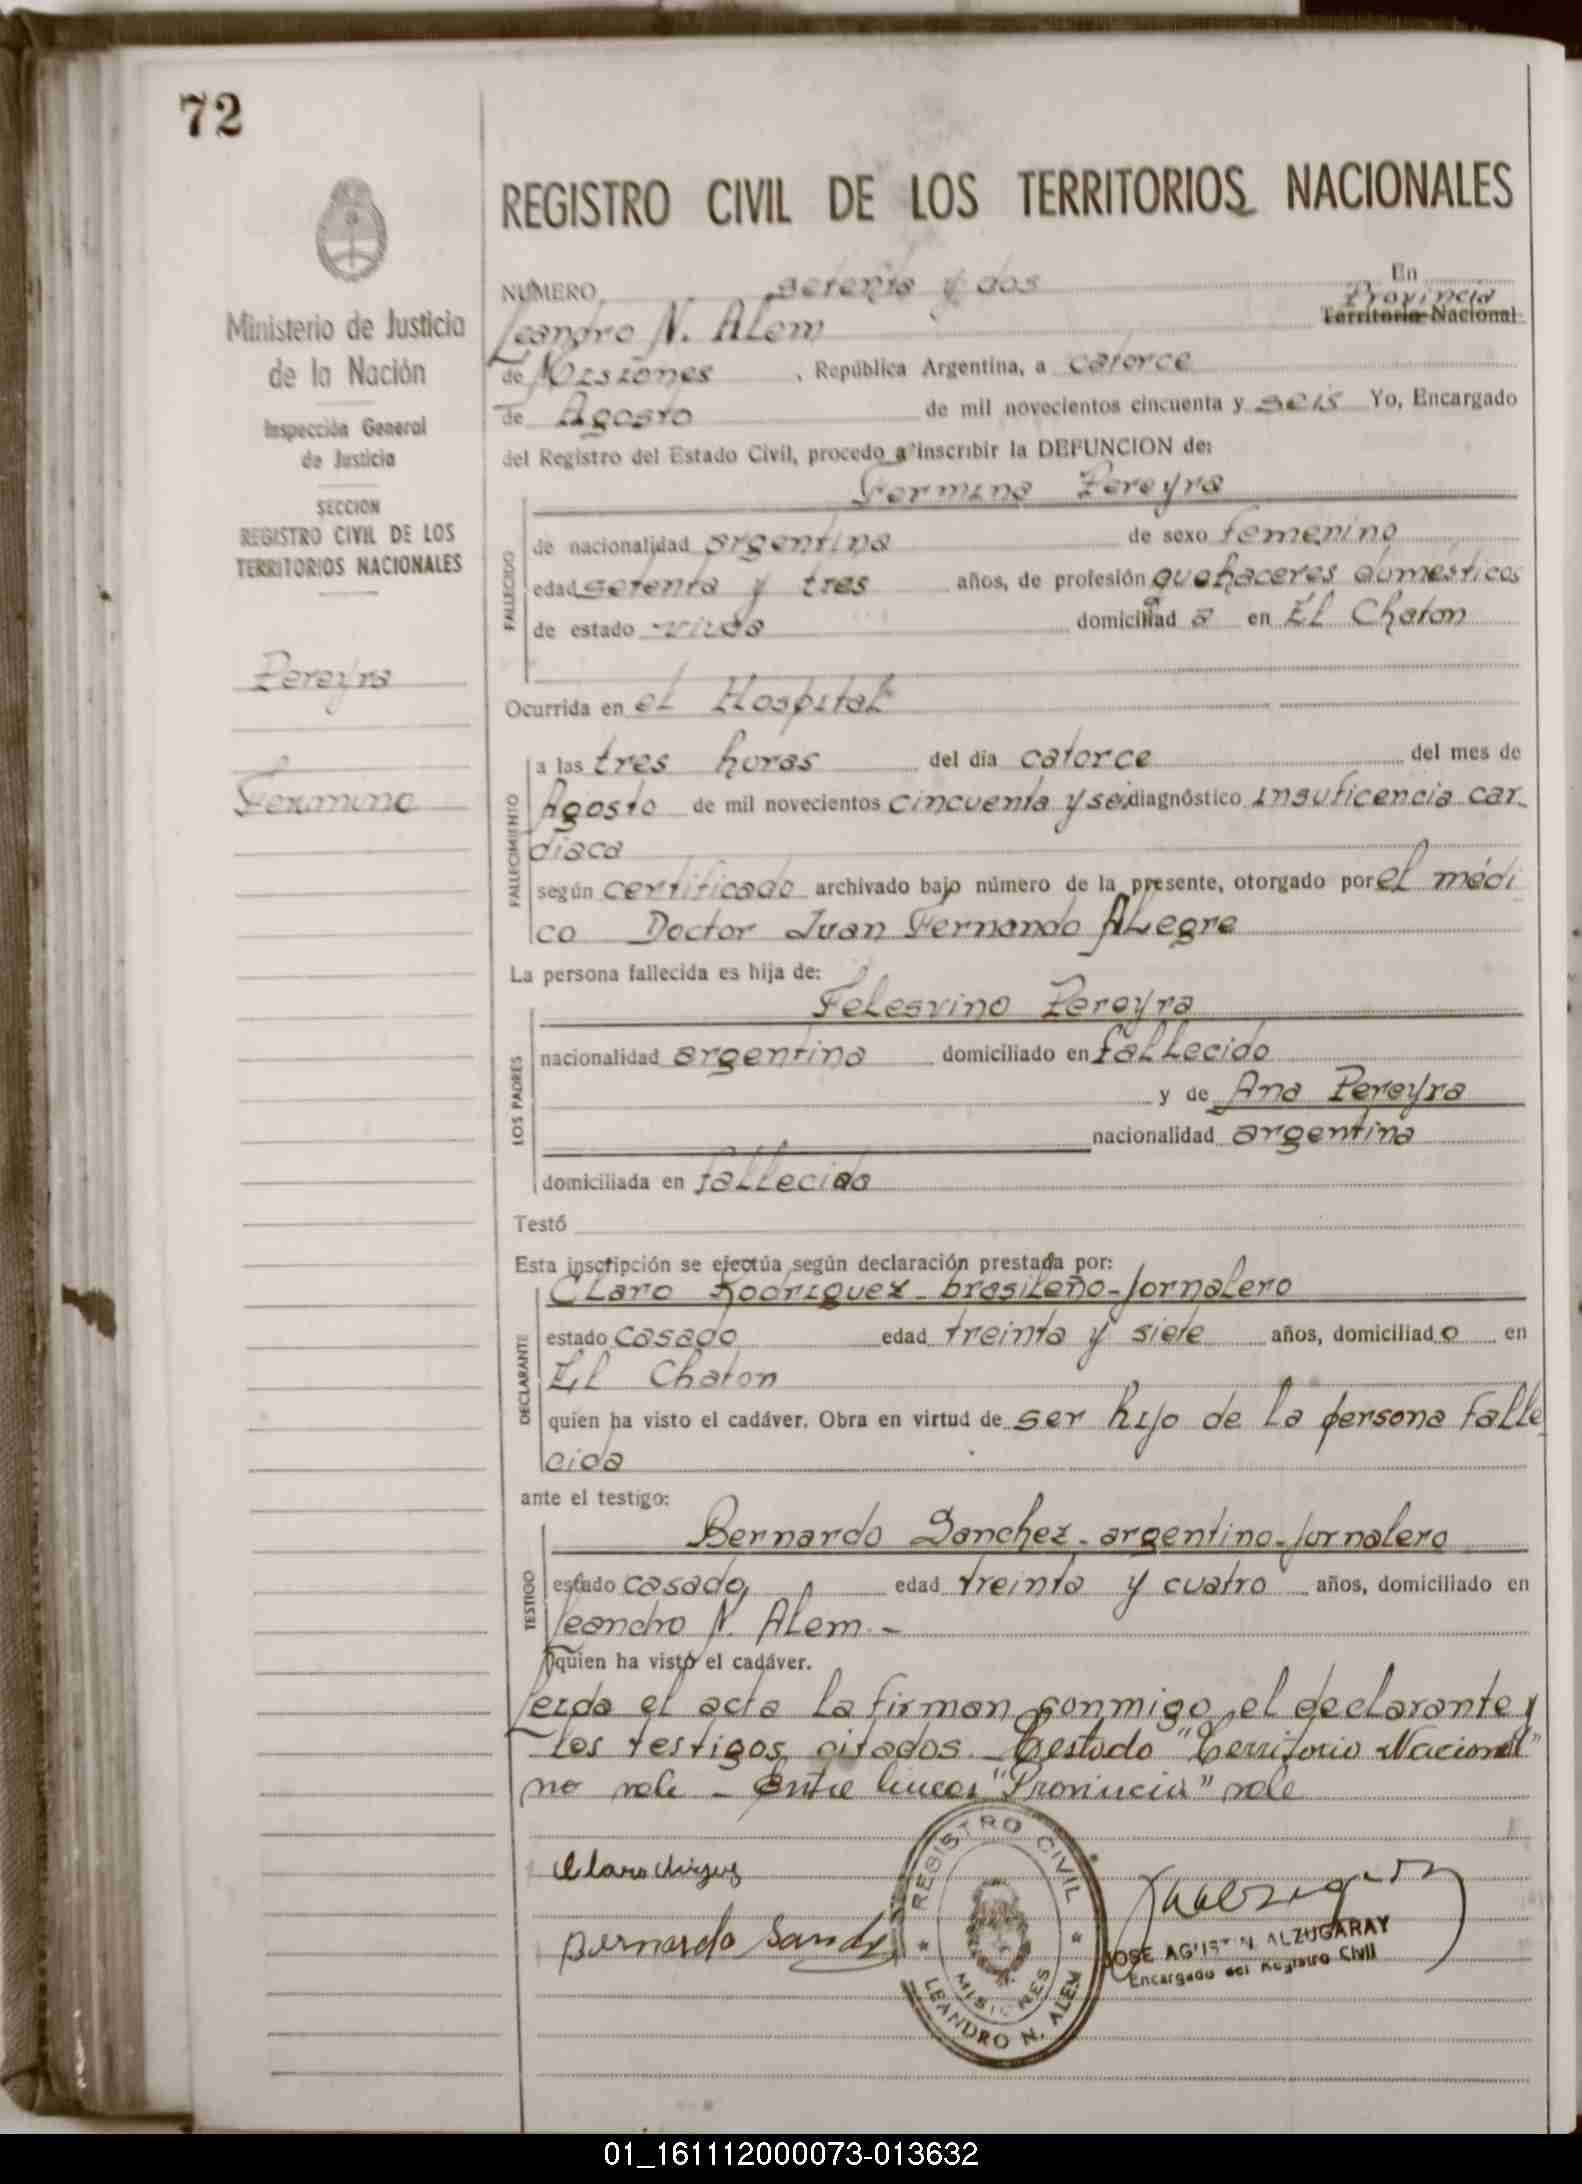 72
REGISTRO CIVIL DE LOS TERRITORIOS NACIONALES
Ministerio de Justicia
de la Nación
Inspección General
de Justicia
SECCION
REGISTRO CIVIL DE LOS
TERRITORIOS NACIONALES
Pereyra
Fermina
NUMERO setenta y dos En
Leandro N. Alem Provincia Territorio Nacional
de Misiones , República Argentina, a catorce
de Agosto de mil novecientos cincuenta y seis Yo, Encargado
del Registro del Estado Civil, procedo a inscribir la DEFUNCION de:
Fermina Pereyra
FALLECIDO
de nacionalidad argentina de sexo femenino
edad setenta y tres años, de profesión quehaceres domésticos
de estado viuda domiciliad a en El Chaton
Ocurrida en el Hospital
FALLECIMIENTO
a las tres horas del día catorce del mes de
Agosto de mil novecientos cincuenta y seis diagnóstico insuficencia car-
diaca
según certificado archivado bajo número de la presente, otorgado por el médi
co Doctor Juan Fernando Alegre
La persona fallecida es hija de:
LOS PADRES
Felesvino Pereyra
nacionalidad argentina domiciliado en fallecido
y de Ana Pereyra
nacionalidad argentina
domiciliada en fallecida
Testó
Esta inscripción se efectúa según declaración prestada por:
DECLARANTE
Claro Rodriguez - brasileño - Jornalero
estado casado edad treinta y siete años, domiciliad o en
El Chaton
quien ha visto el cadáver. Obra en virtud de ser hijo de la persona falle
cida
ante el testigo:
TESTIGO
Bernardo Sanchez - argentino - Jornalero
estado casado, edad treinta y cuatro años, domiciliado en
Leandro N. Alem. -
quien ha visto el cadáver.
Leida el acta la firman conmigo, el declarante y
los testigos citados. Testado "Territorio Nacional"
no vale - Entre lineas "Provincia" vale
Bernardo Sanchez
REGISTRO CIVIL
MISIONES
LEANDRO N. ALEM
JOSE AGUSTIN ALZUGARAY
Encargado del Registro Civil
01_161112000073-013632